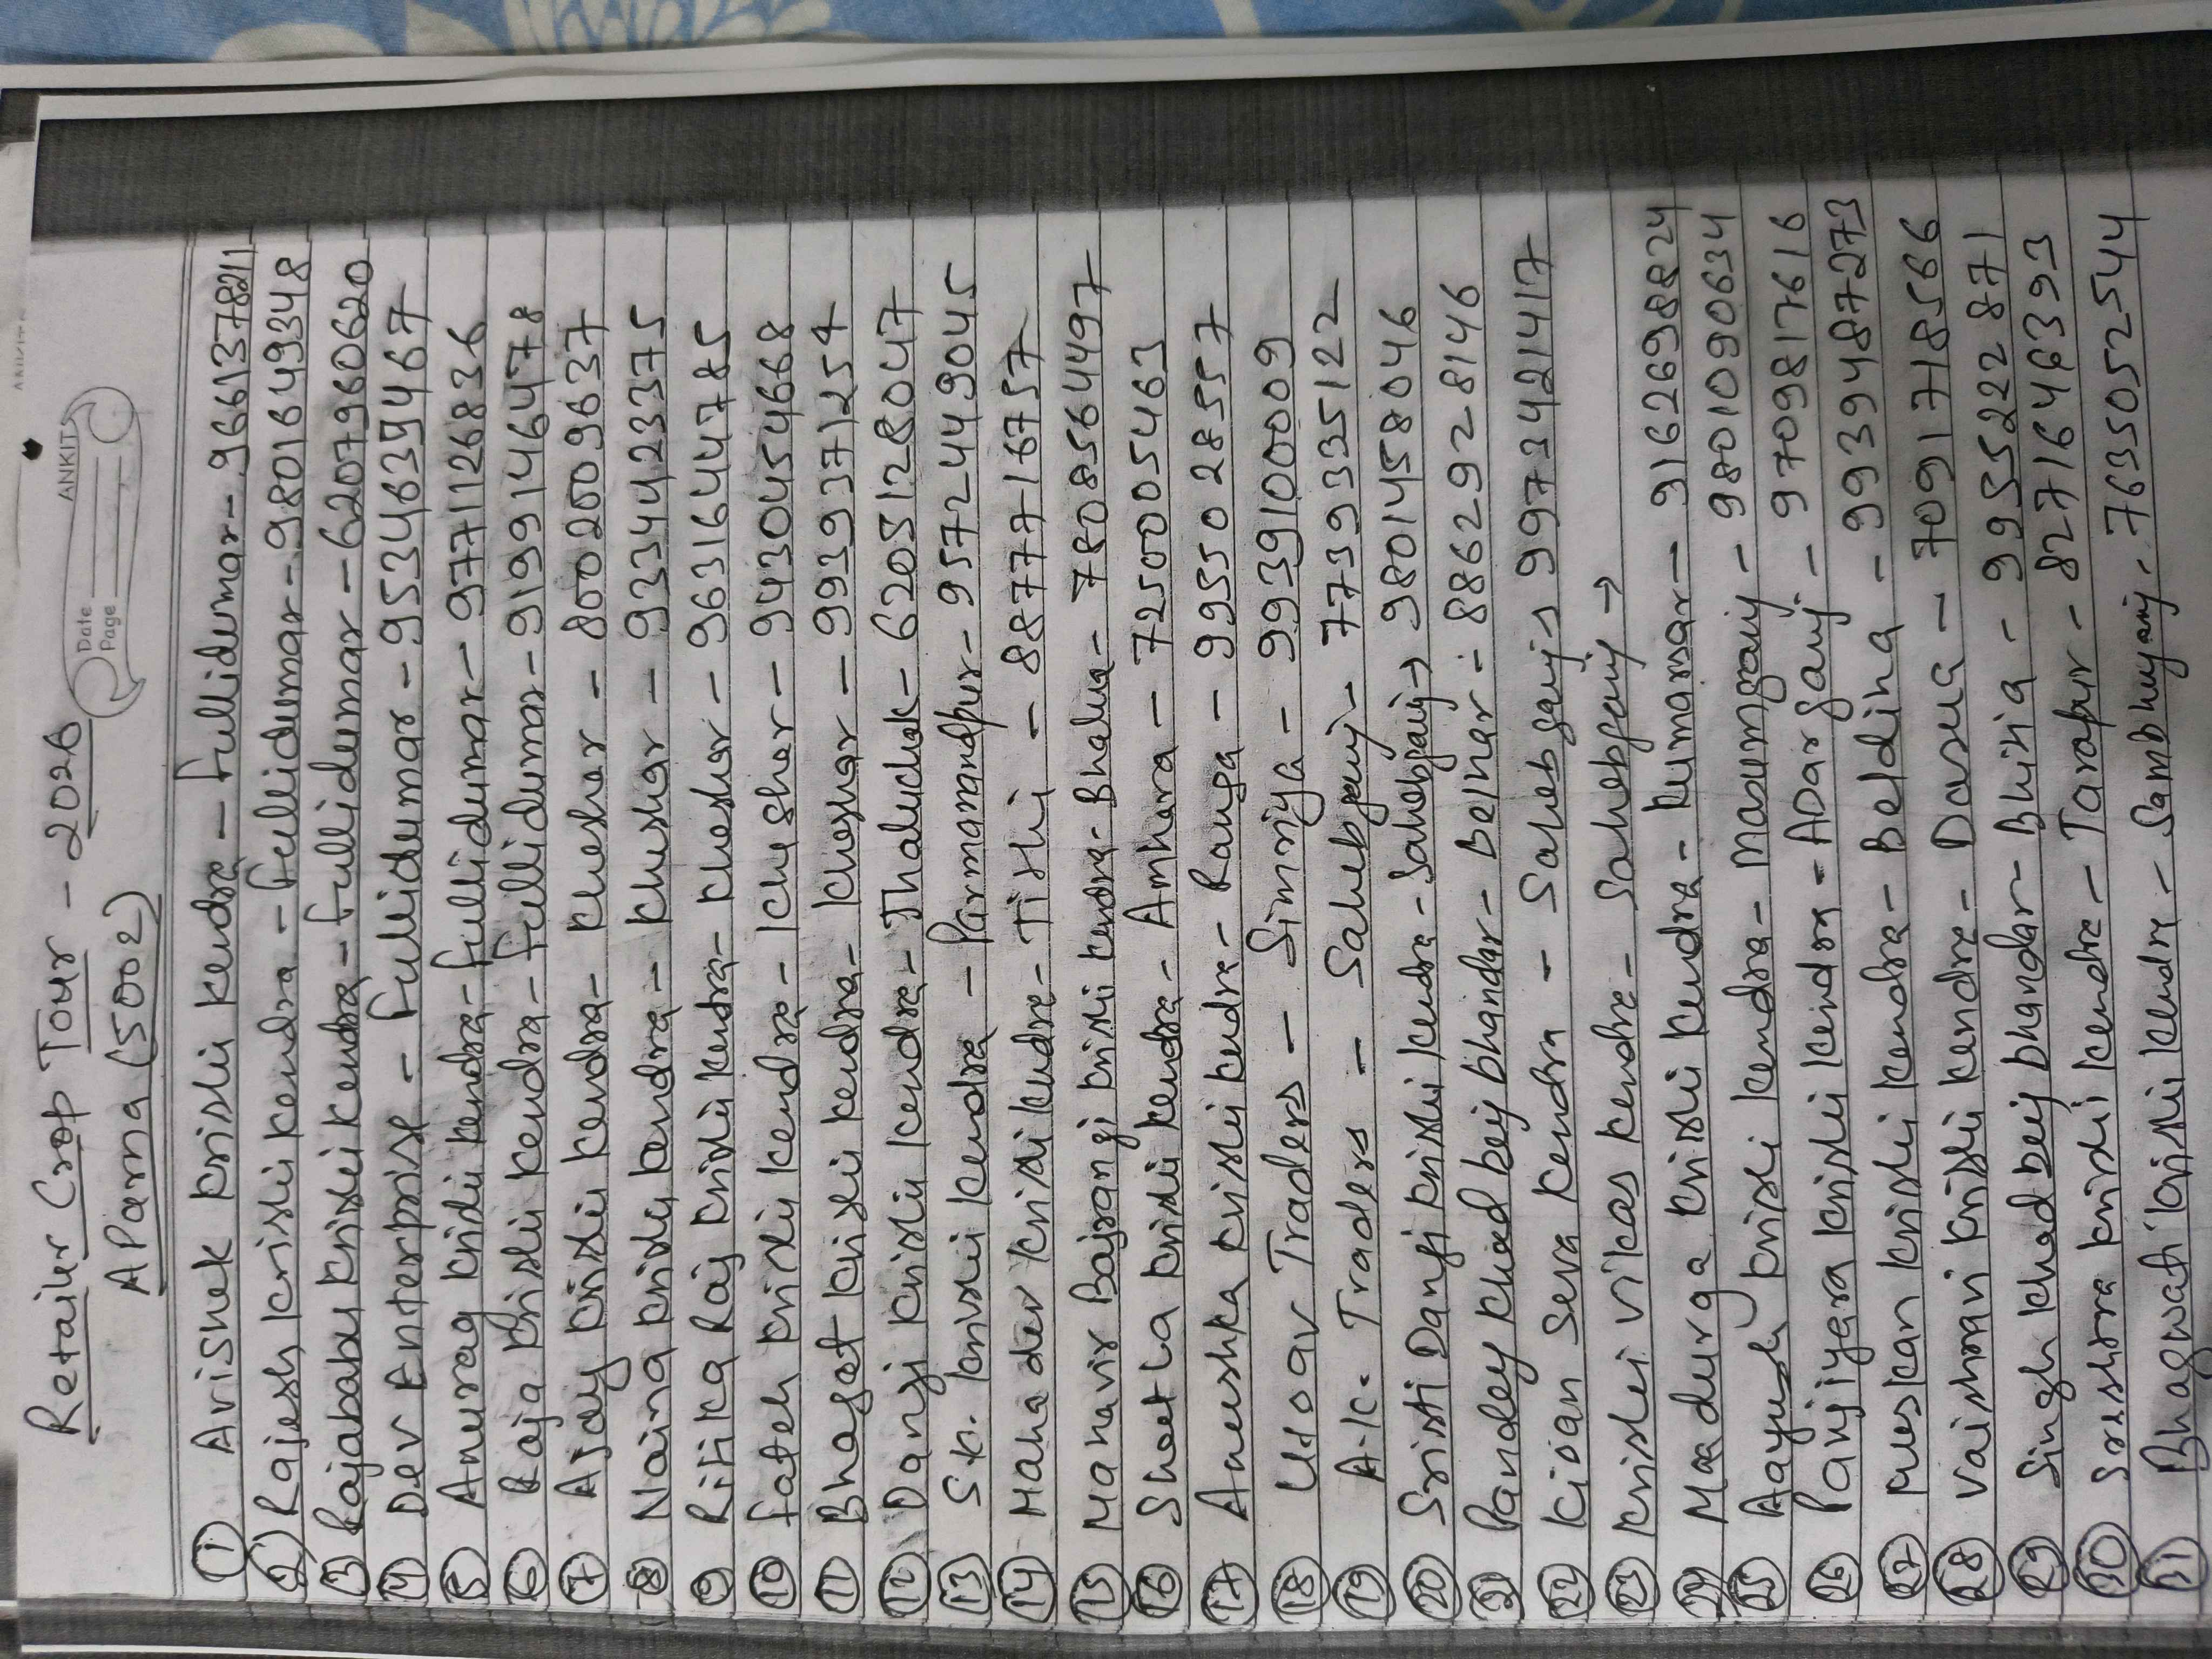 ANKIT
Date
Page
Retailer Crop Tour - 2026
APArna (5002)
① Avishek krishi kendra - Fullidumar - 9661378211
② Rajesh krishi kendra - Fullidumar - 9801649348
③ Rajababu krishi kendra - Fullidumar - 6207960620
④ Dev Enterprise - Fullidumar - 9534639467
⑤ Anurag krishi kendra - Fullidumar - 9771126836
⑥ Raja krishi kendra - Fullidumar - 9199146478
⑦ Ajay krishi kendra - kheshar - 8002009637
⑧ Naina krishi kendra - kheshar - 9334423375
⑨ Ritika Raj krishi kendra - kheshar - 9631644785
⑩ Fateh krishi kendra - kheshar - 9430454668
⑪ Bhagat krishi kendra - kheshar - 9939371254
⑫ Danji krishi kendra - Jhaluchak - 6205128047
⑬ S.K. krishi kendra - Parmanandpur - 9572449045
⑭ Mahadev krishi kendra - Tithi - 8877716757
⑮ Mahavir Bajrangi krishi kendra - Bhalua - 7808564497
⑯ Sheetla krishi kendra - Amhara - 7250005463
⑰ Anushka krishi kendra - Ranga - 9955028557
⑱ Udav Traders - Simriya - 9939100009
⑲ A.K. Traders - Sahebganj - 7739335122
⑳ Sristi Danji krishi kendra - Sahebganj → 9801458046
㉑ Pandey khad beij bhandar - Belhar - 8862928146
㉒ kisan Seva kendra - Sahebganj 9973421417
㉓ krishi vikas kendra - Sahebganj →
㉔ Maadurga krishi kendra - kumarsar - 9162698824
㉕ Aayush krishi kendra - Masumganj - 9801090634
㉖ Panjiyara krishi kendra - ADarganj - 9709817616
㉗ Muskan krishi kendra - Beldiha - 9939487273
㉘ Vaishnavi krishi kendra - Dasua - 7091718566
㉙ Singh khad beij bhandar - Bhitia - 9955222871
㉚ Sreshtra krishi kendra - Tarapur - 8271646393
㉛ Bhagwati krishi kendra - Sambhuganj - 7635052544